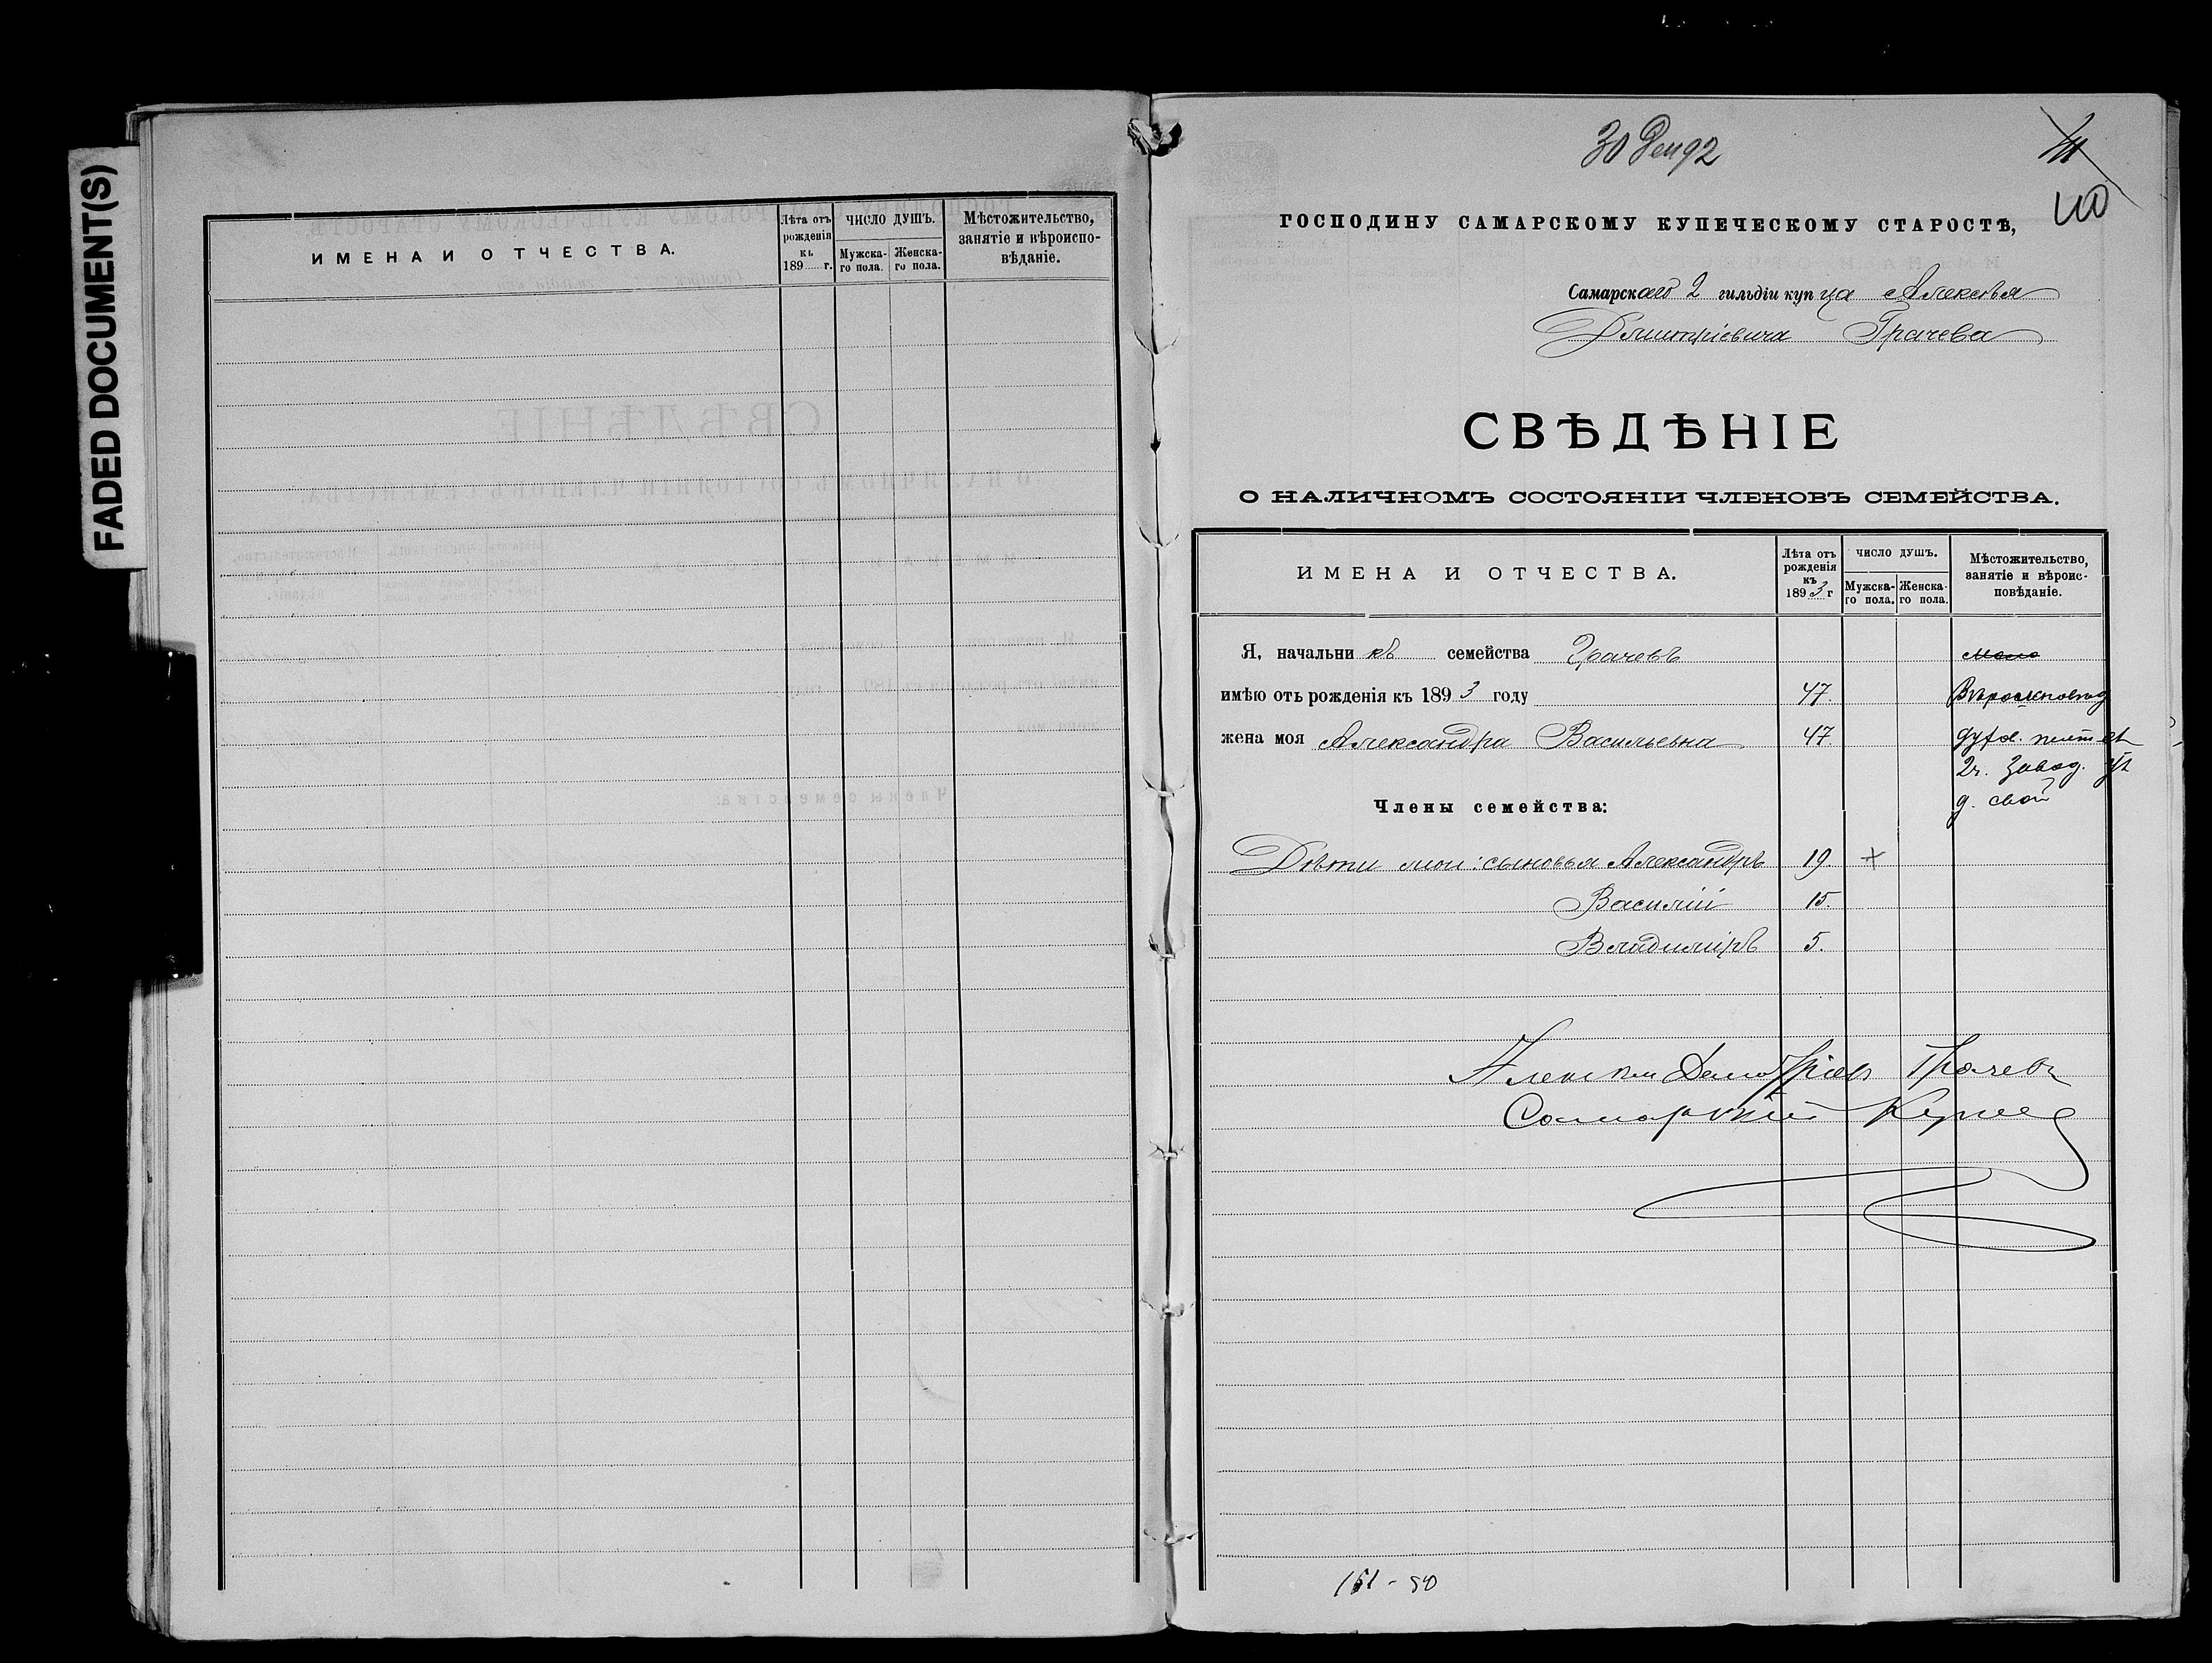 FADED DOCUMENT(S)
ИМЕНА И ОТЧЕСТВА.
Лѣта отъ рожденія къ 189 г.
ЧИСЛО ДУШЪ.
Мужска-го пола.
Женска-го пола.
Мѣстожительство,
занятіе и вѣроиспо-
вѣданіе.
30 Дек 92
110
ГОСПОДИНУ САМАРСКОМУ КУПЕЧЕСКОМУ СТАРОСТѢ,
Самарскаго 2 гильдіи купца Алексѣя
Дмитріевича Грачева
СВѢДѢНІЕ
О НАЛИЧНОМЪ СОСТОЯНІИ ЧЛЕНОВЪ СЕМЕЙСТВА.
ИМЕНА И ОТЧЕСТВА.
Лѣта отъ рожденія къ 1893 г
ЧИСЛО ДУШЪ.
Мужска-го пола.
Женска-го пола.
Мѣстожительство,
занятіе и вѣроис-
повѣданіе.
Я, начальникъ семейства Грачевъ
имѣю отъ рожденія къ 1893 году 47.
жена моя Александра Васильевна 47.
2ч. Завод. ул
д. свой
Члены семейства:
Дѣти мои: сыновья Александръ 19 +
Василій 15.
Владиміръ 5.
Алексѣй Дмитріев Грачевъ
Самарскій Купец
151-90